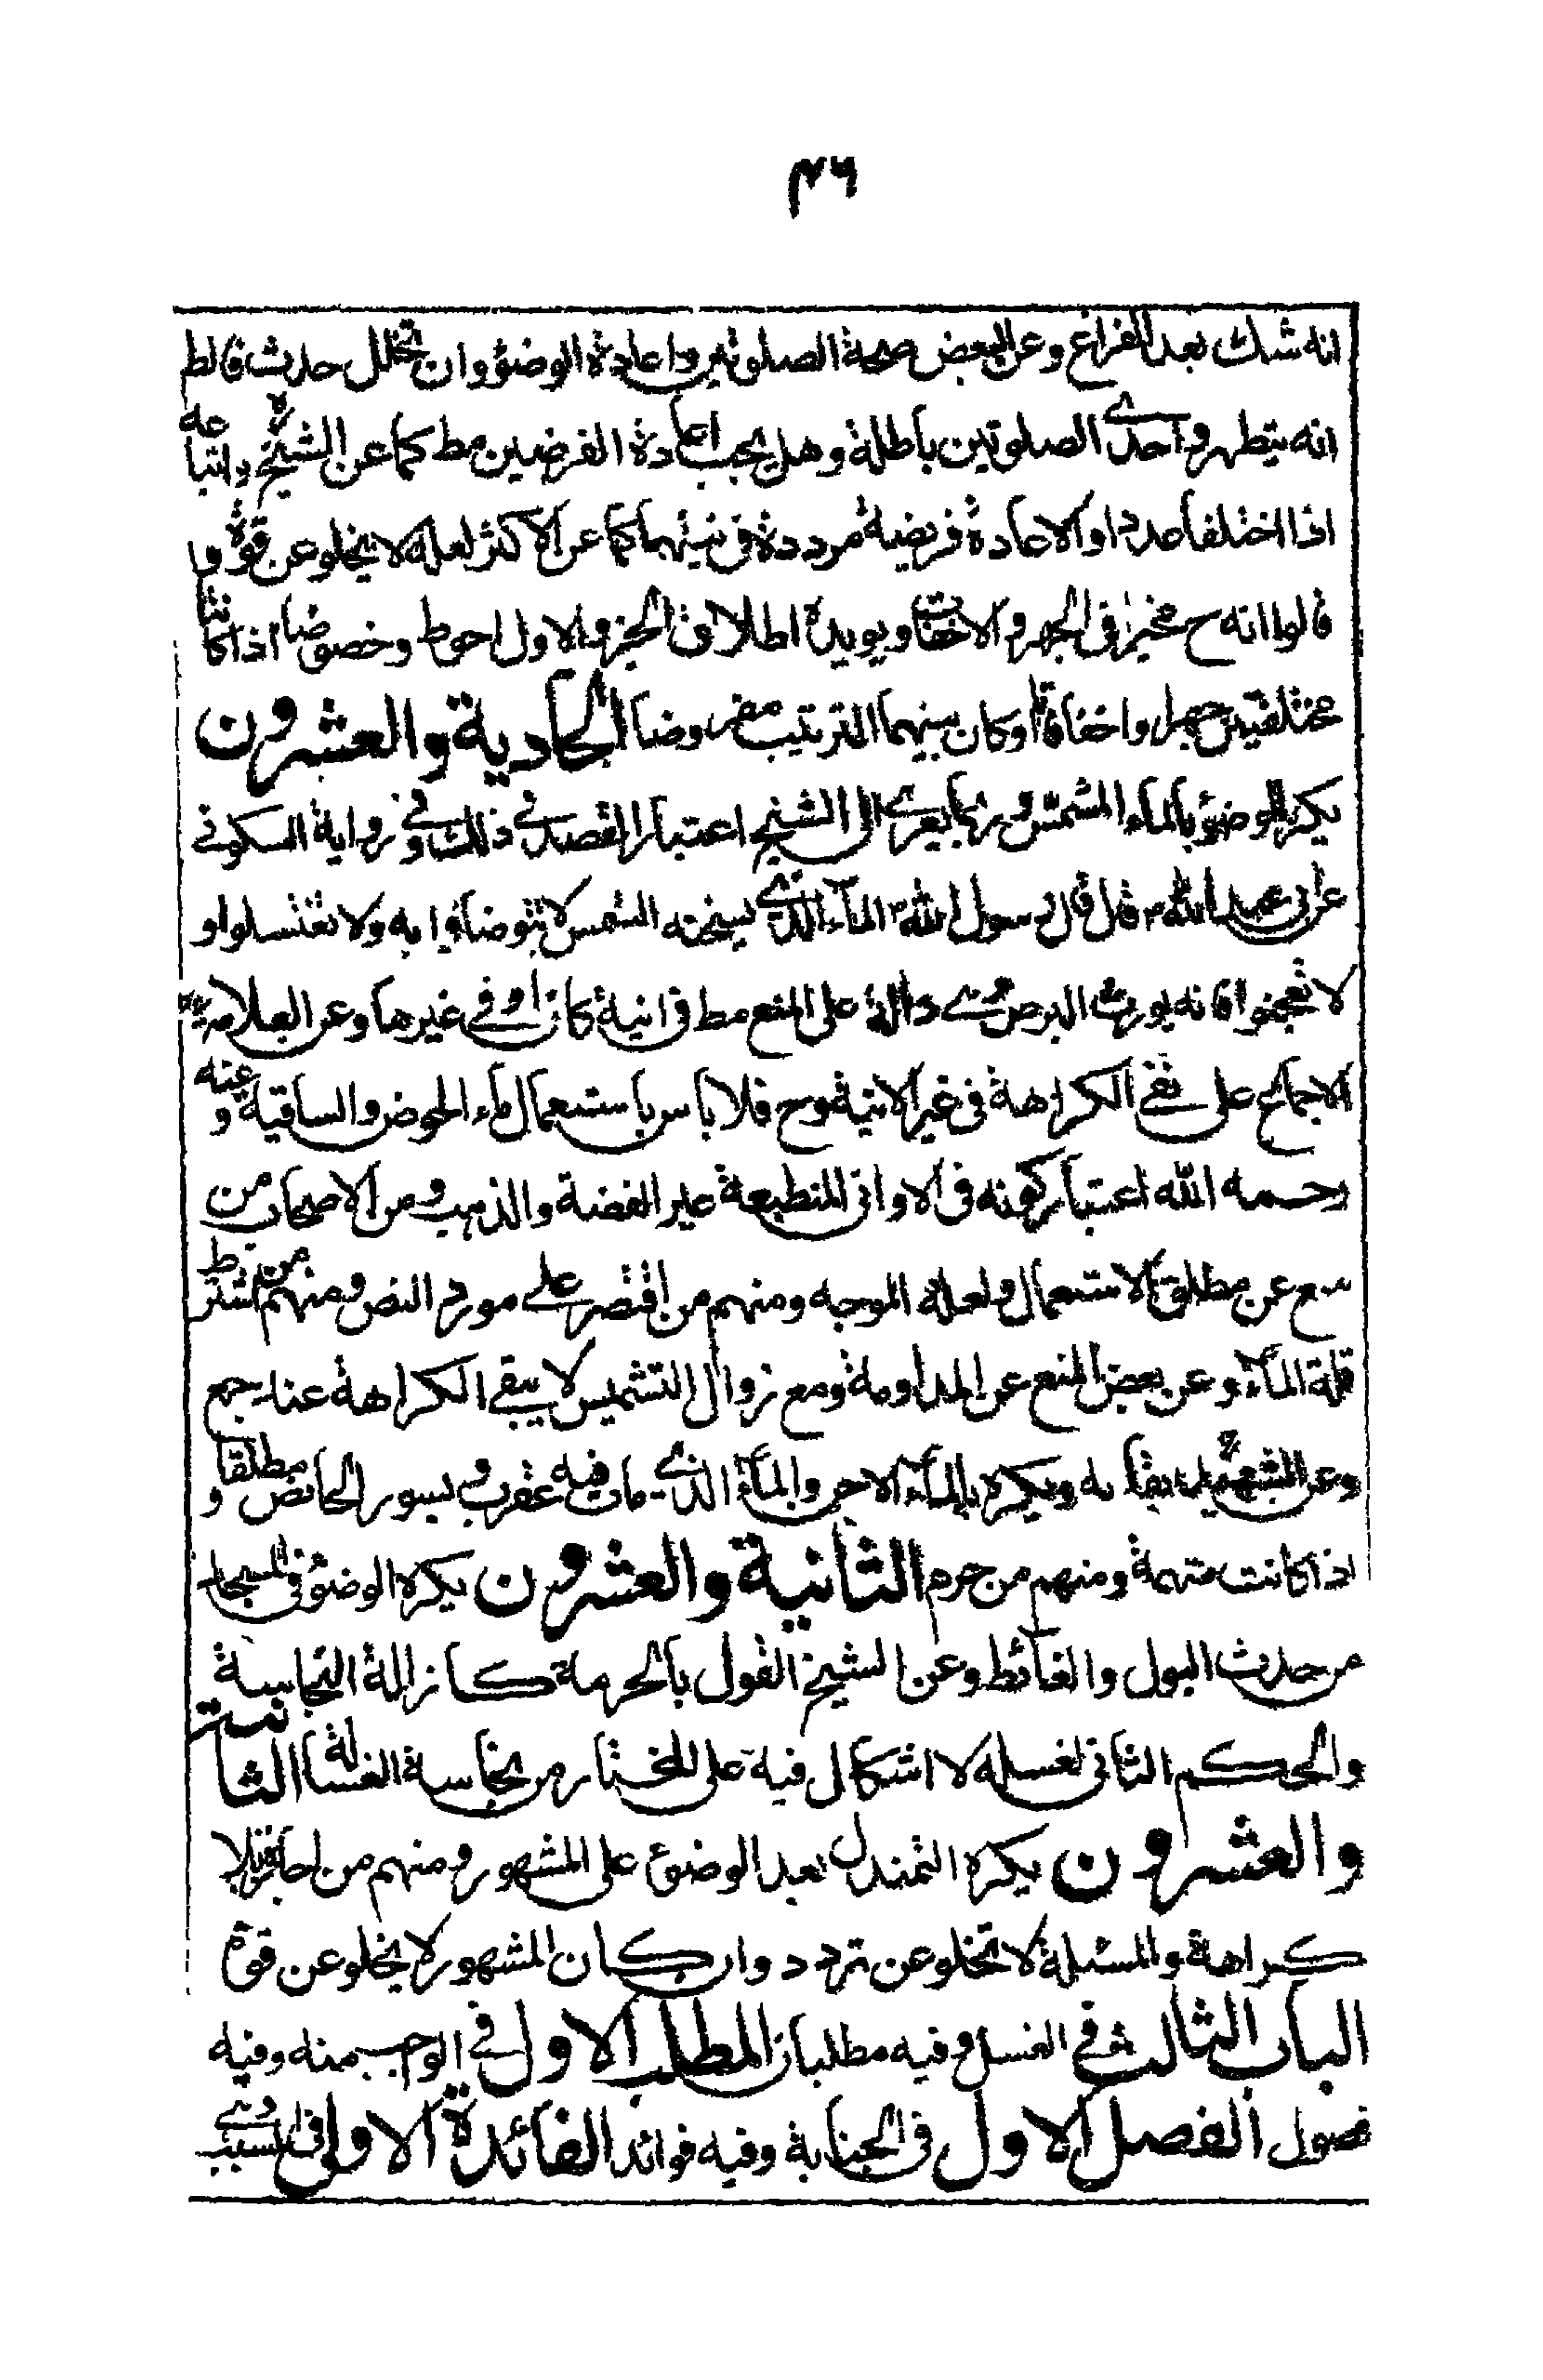 ۴۶
انه شك بعد الفراغ وعن البعض صحة الصلوتين واعادة الوضوٴ وان تخلل حدث فالظ
انه يتطهر واحدى الصلوتين باطلة وهل يجب اعادة الفرضين مط كما عن الشيخ ره واتباعه
اذا اختلفا عددا او الاعادة فريضة مرددة فى نيتهما كما عن الاكثر لعله لا يخلو عن قوة و
قالوا انه ح مخير فى الجهر والاخفات ويويده اطلاق الخبر والاول احوط وخصوصا اذا كانتا
مختلفتين جهرا واخفاتا وكان بينهما الترتيب مفروضا الحادية والعشرون
يكره الوضوٴ بالماء المشمس وربما يعزى الى الشيخ اعتبار القصد فى ذلك وفى رواية السكونى
عن ابى عبد الله ع قال قال رسول الله ص المآء الذى يسخنه الشمس لا تتوضأوا به ولا تغتسلوا و
لا تعجنوا فانه يورث البرص وهى دالة على المنع مط فى انية كان او فى غيرها وعن العلامة ره
الاجماع على نفى الكراهة فى غير الانية وح فلا باس باستعمال ماء الحوض والساقية وعنه
رحمه الله اعتبار كونه فى الاوانى المنطبعة غير الفضة والذهب ومن الاصحاب من
منع عن مطلق الاستعمال ولعله الموجه ومنهم من اقتصر على مورد النص ومنهم من اشترط
قلة المآء وعن بعض المنع عن المداومة ومع زوال التشميس لا يبقى الكراهة عند جمع
وعن الشهيد ره بقآئه ويكره بالمآء الاجن والمآء الذى مات فيه عقرب وبسور الحائض مطلقا و
اذا كانت متهمة ومنهم من حرم الثانية والعشرون يكره الوضوٴ فى المسجد
من حدث البول والغائط وعن الشيخ القول بالحرمة كازالة النجاسة
والحكم الثانى لغسله لا اشكال فيه على المختار من نجاسة الغسالة الثالثة
والعشرون يكره التمندل بعد الوضوٴ على المشهور ومنهم من اجاز بلا
كراهة والمسئلة لا تخلو عن تردد وان كان المشهور لا يخلو عن قوة
الباب الثالث فى الغسل وفيه مطلبان المطلب الاول فى الواجب منه وفيه
فصول الفصل الاول فى الجنابة وفيه فوائد الفائدة الاولى فى السبب